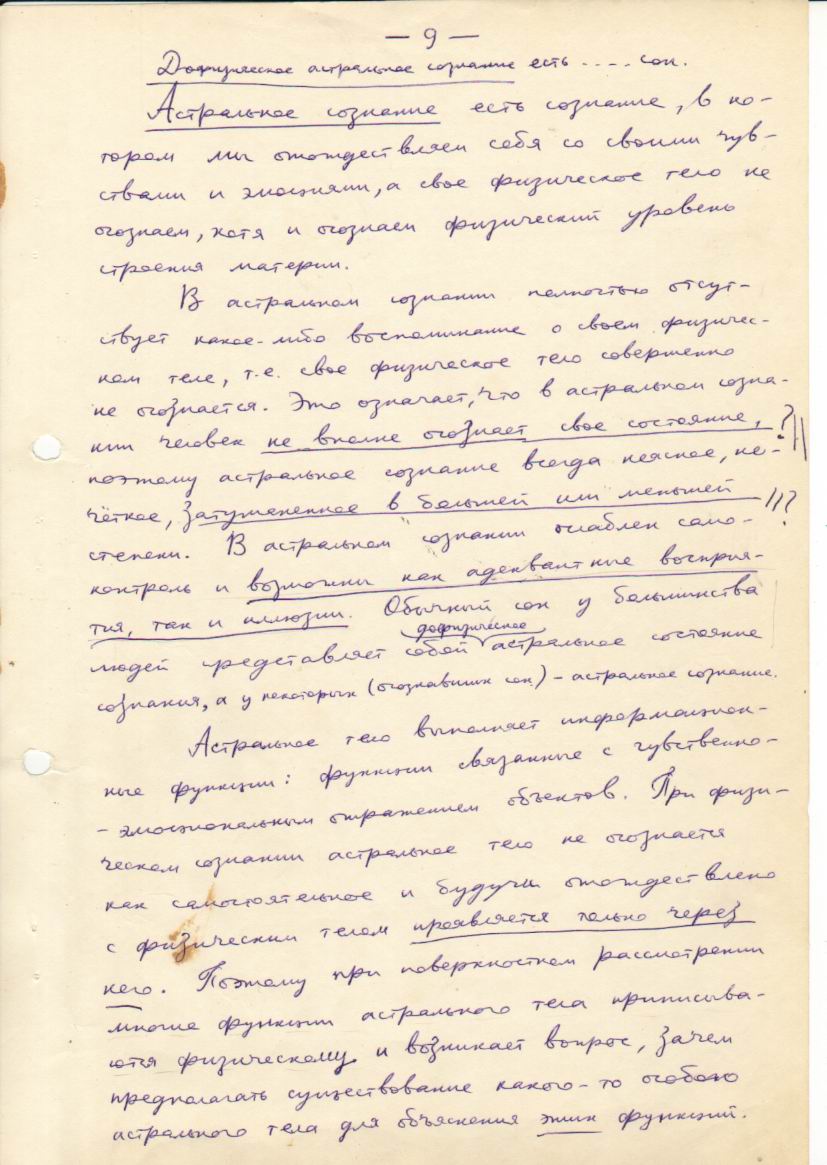 — 9 —
Дофизическое астральное сознание есть .... сон.
Астральное сознание есть сознание, в ко-
тором мы отождествляем себя со своими чув-
ствами и эмоциями, а свое физическое тело не
осознаем, хотя и осознаем физический уровень
строения материи.
В астральном сознании полностью отсут-
ствует какое-либо воспоминание о своем физичес-
ком теле, т.е. свое физическое тело совершенно
не осознается. Это означает, что в астральном созна-
нии человек не вполне осознает свое состояние, ?
поэтому астральное сознание всегда неясное, не-
чёткое, затуманенное в большей или меньшей !!?
степени. В астральном сознании ослаблен само-
контроль и возможны как адекватные восприя-
тия, так и иллюзии. Обычный сон у большинства
дофизическое
людей представляет собой астральное состояние
сознания, а у некоторых (осознавших сон) – астральное сознание.
Астральное тело выполняет информацион-
ные функции: функции связанные с чувственно-
-эмоциональным отражением объектов. При физи-
ческом сознании астральное тело не осознается
как самостоятельное и будучи отождествлено
с физическим телом проявляется только через
него. Поэтому при поверхностном рассмотрении
многие функции астрального тела приписыва-
ются физическому и возникает вопрос, зачем
предполагать существование какого-то особого
астрального тела для объяснения этих функций.